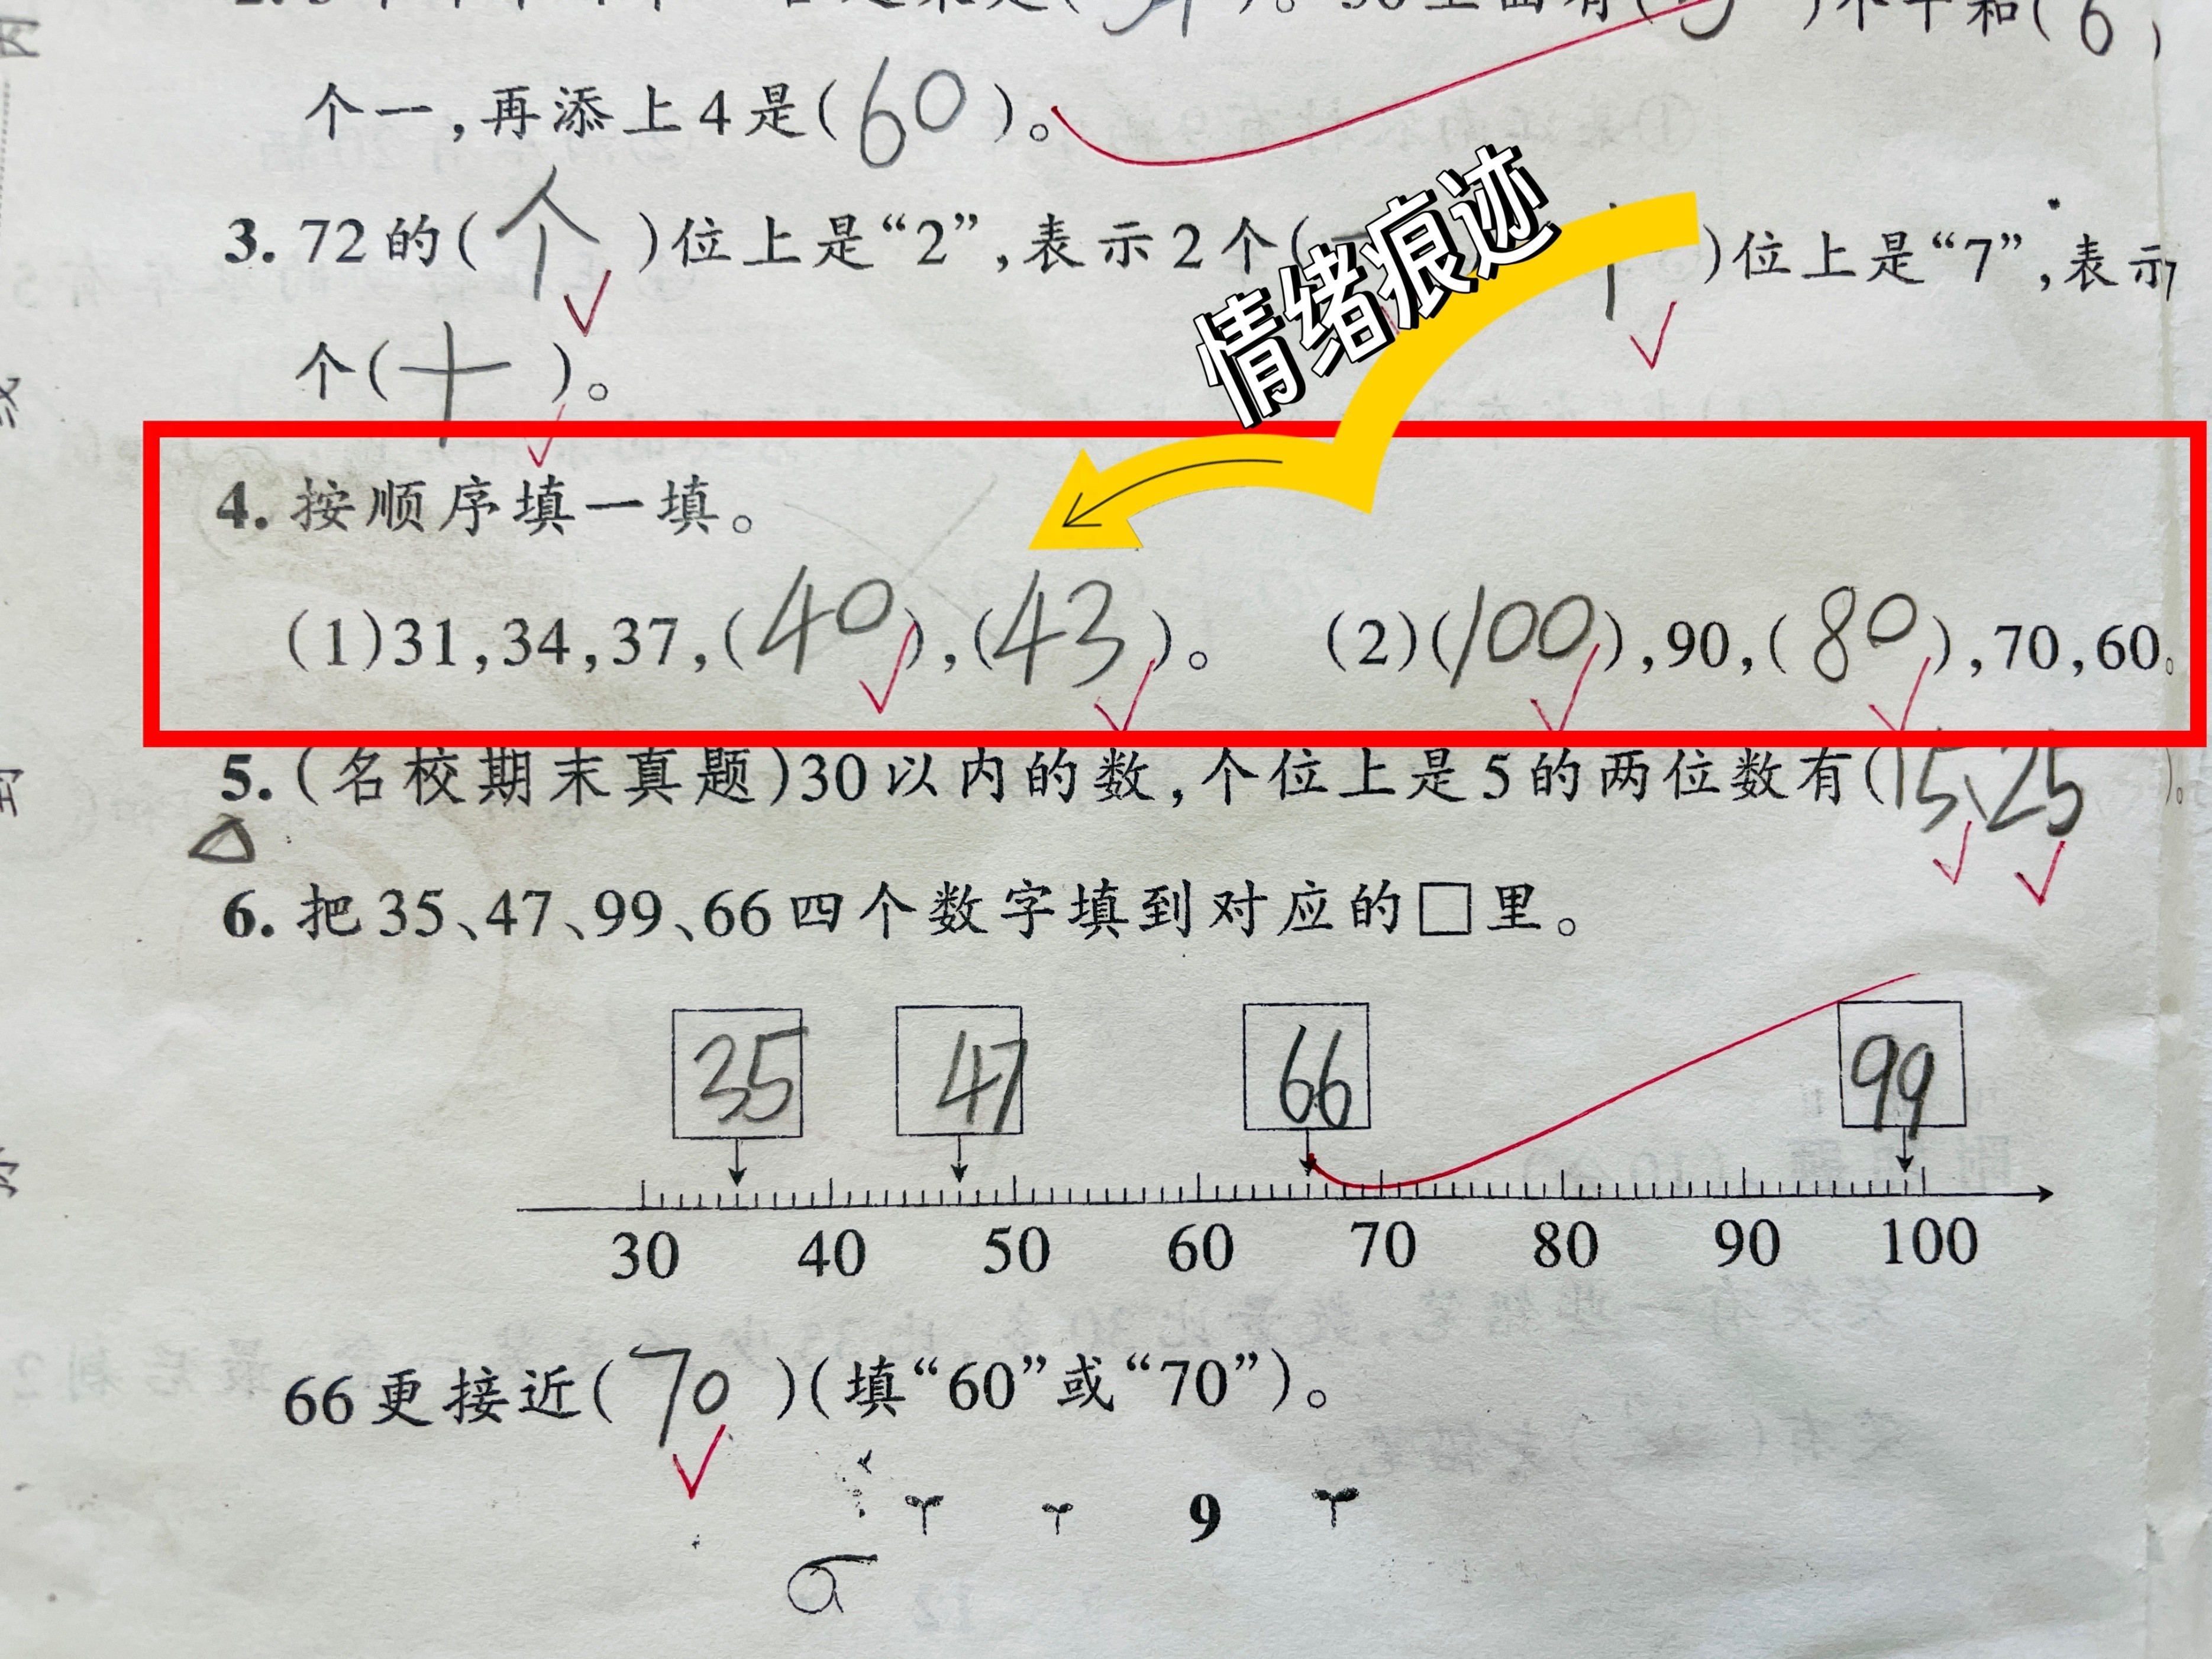 个一,再添上4是(60)。
3. 72的(个)位上是“2”,表示2个(
)位上是“7”,表示7
情绪痕迹
个(十)。
4. 按顺序填一填。
(1)31,34,37,(40),(43)。 (2)(100),90,(80),70,60。
5. (名校期末真题)30以内的数,个位上是5的两位数有(15、25)。
6. 把35、47、99、66四个数字填到对应的□里。
35 47 66 99
30 40 50 60 70 80 90 100
66更接近(70)(填“60”或“70”)。
9